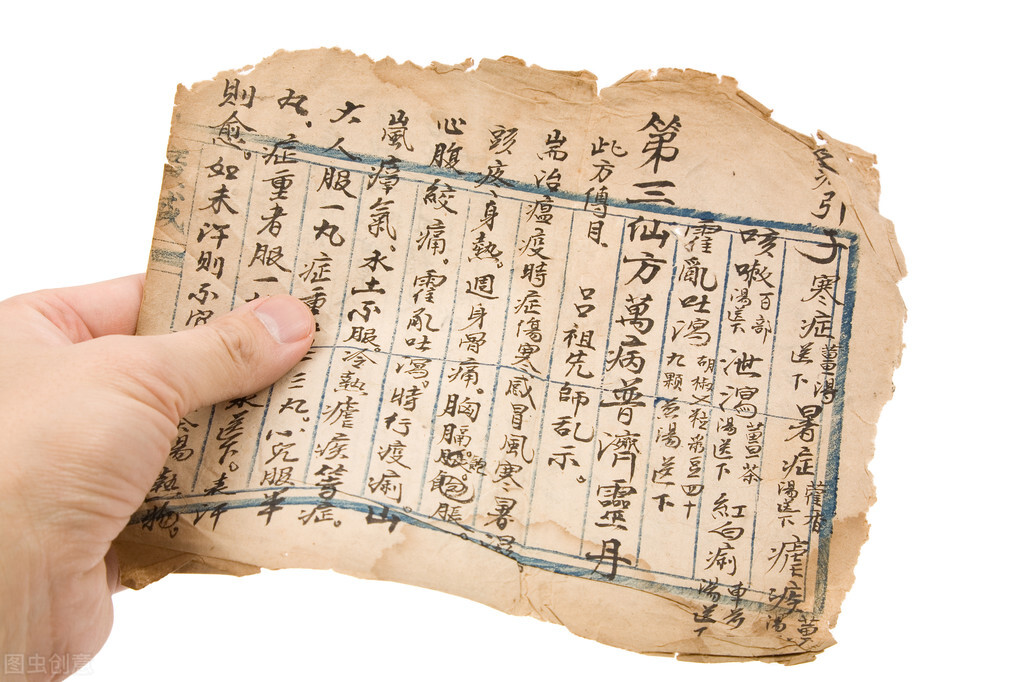 引子 寒症薑湯送下 暑症藿香湯送下 瘧疾薑湯
咳嗽百部湯送下 泄瀉薑茶湯送下 紅白痢車前湯送下
霍亂吐瀉胡椒 九顆 豆四十 湯送下
第三仙方萬病普濟靈丹
此方傳自 呂祖先師乩示。
耑治瘟疫時症傷寒感冒風寒暑濕
頭疼身熱。週身骨痛。胸膈服飽脹。
心腹絞痛。霍亂吐瀉。時行疫痢。山
嵐瘴氣。水土不服。冷熱瘧疾等症。
大人服一丸 症重
丸、症重者服一 三丸。小兒服半
則愈。如未汗則不宜 送下。未汗
湯 熱物。
图虫创意